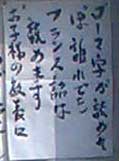 ローマ字が読めれ
ば誰れでも
フランス語は
読めます
お子様の教養に